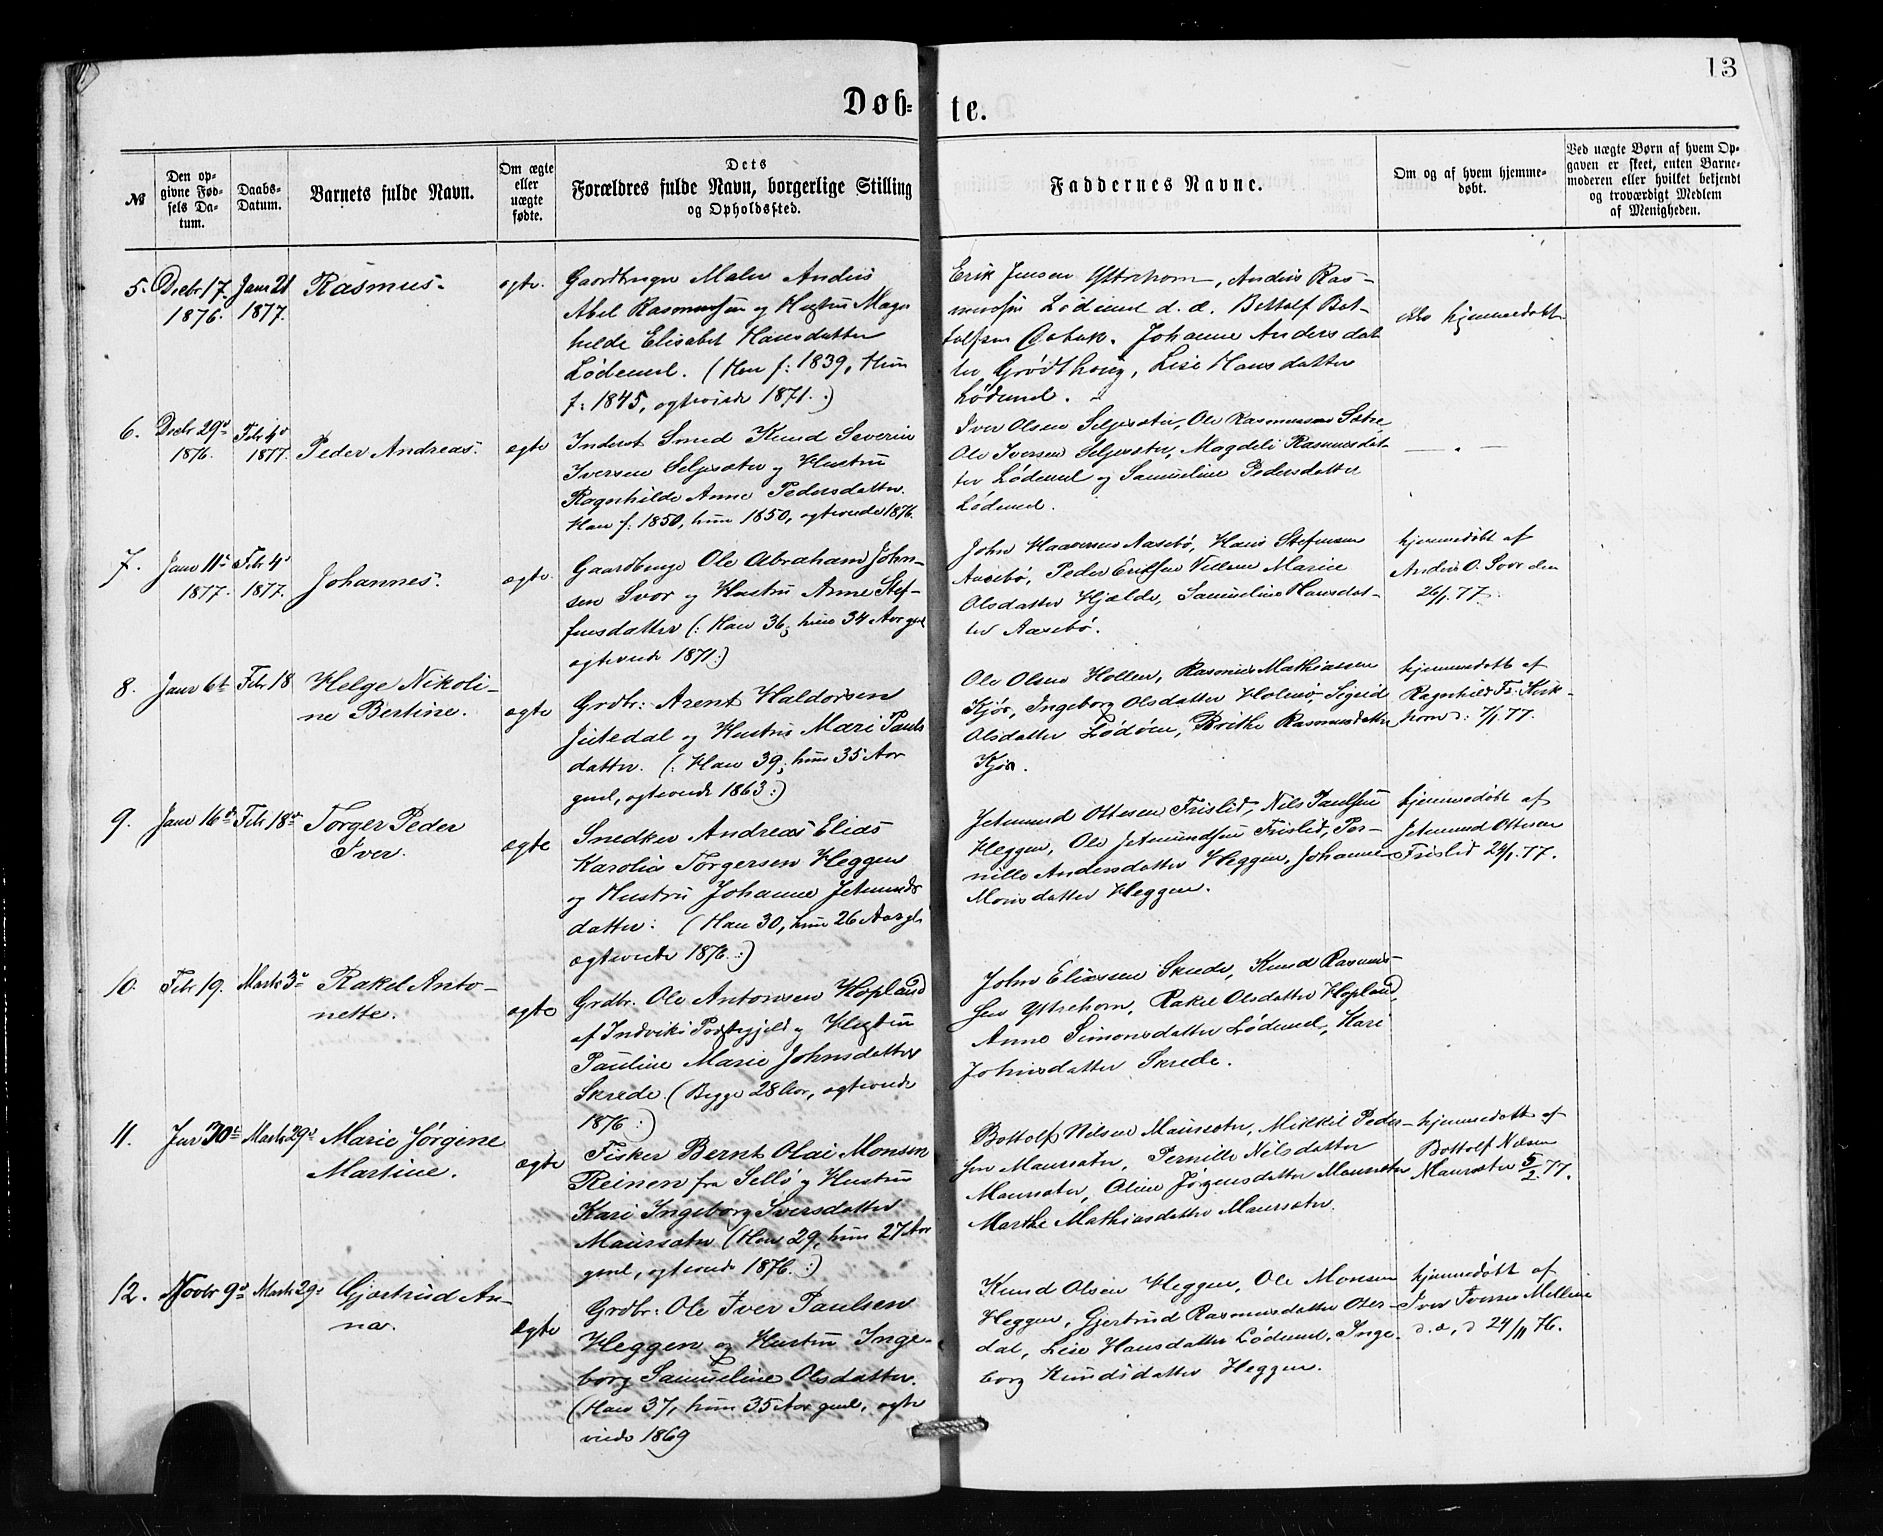 13
Døb-
te.
№
Den op-
givne Fød-
sels Da-
tum.
Daabs-
Datum.
Barnets fulde Navn.
Om ægte
eller
uægte
fødte.
Dets
Forældres fulde Navn, borgerlige Stilling
og Opholdssted.
Faddernes Navne.
Om og af hvem hjemme-
døbt.
Ved uægte Børn af hvem Op-
gaven er skeet, enten Barne-
moderen eller hvilket bekjendt
og troværdigt Medlem
af Menigheden.
5. Decbr 17.
1876.
Janr 21
1877.
Rasmus.
ægte.
Gaardbruger Maler Anders
Abel Rasmussen og Hustru Mag-
hilde Elisabet Hansdatter
Lødemel. (Han f: 1839, Hun
f: 1845, ægtviede 1871.)
Erik Jensen Yttrehorn, Anders Ras-
mussen Lødemel d. æ. Bottolf Bot-
tolfsen, Johanne Andersdat-
ter Grødthoug, Lise Hansdatter
Lødemel.
ikke hjemmedøbt
6. Decbr 29de
1876.
Febr 4de
1877.
Peder Andreas.
ægte
Inderst Smed Knud Severin
Iversen Seljesæter og Hustru
Ragnhilde Anne Pedersdatter.
Han f: 1850, hun 1850, ægteviede 1876.
Iver Olsen Seljesæter, Ole Rasmussen Sætre
Ole Iversen Seljesæter, Magdeli Rasmusdat-
ter Lødemel og Samueline Pedersdatter
Lødemel.
— " —
7. Janr 11te
1877.
Febr 4de
1877.
Johannes.
ægte.
Gaardbruger Ole Abraham John-
sen Svor og Hustru Anne Stef-
fensdatter (: Han 36, hun 34 Aar gml
ægteviede 1871:)
John Haaversen Aasebø, Hans Stefensen
Aasebø, Peder Eriksen, Marie
Olsdatter Hjelde, Samueline Hansdat-
ter Aasebø.
hjemmedøbt af
Anders O. Svor den
26/1. 77.
8. Janr 6te Febr 18
Helge Nikoli-
ne Bertine.
ægte
Grdbr: Arent Haldorsen
Jutedal og Hustru Mari Pauls
datter. (: Han 39, hun 35 Aar
gml, ægteviede 1863:)
Ole Olsen Hollen, Rasmus Mathiassen
Kjøs, Ingeborg Olsdatter, Sigrid
Olsdatter Lødøen, Brithe Rasmusdatter
Kjøs.
hjemmedøbt af
Ragnhild Kirk-
horn d: 7/1 77.
9. Janr 16de Febr 18de
Torger Peder
Iver.
ægte
Snedker Andreas Elias
Karolus Torgersen Heggen
og Hustru Johanne Jetmunds
datter: (Han 30, hun 26 Aar gl.
ægteviede 1876.:)
Jetmund Ottesen Frislid, Nils Paulsen
Heggen, Ole Jetmundsen Frislid, Per-
nille Andersdatter Heggen, Johanne
Monsdatter Heggen.
hjemmedøbt af
Jetmund Ottesen
Frislid 24/1. 77.
10. Febr 19. Marts 3de
Rakel Anto-
nette.
ægte
Grdbr. Ole Antonsen Hopland
af Indviks Præstegjeld og Hustru
Pauline Marie Johnsdatter
Skrede (Begge 28 Aar, ægteviede
1876:)
John Eliassen Skrede, Knud Rasmus-
sen Yttrehorn, Rakel Olsdatter Hopland,
Anne Simonsdatter Lødemel, Kari
Johnsdatter Skrede.
11. Janr 30te Marts 29de
Marie Jørgine
Martine.
ægte
Fisker Bernt Olai Monsen
Reinen fra Sellø og Hustru
Kari Ingeborg Iversdatter
Maursæter (Han 29, hun 27 Aar
gml, ægteviede 1876.:)
Bottolf Nilsen Maursæter, Mikkel Peder-
sen Maursæter, Pernille Nilsdatter
Maursæter, Oline Jørgensdatter Maursæter
Marthe Mathiasdatter Maursæter.
hjemmedøbt af
Bottolf Nilsen
Maursæter 5/2. 77.
12. Novbr 9de Marts 29de
Gjertrud An-
na.
ægte
Grdbr: Ole Iver Paulsen
Heggen og Hustru Inge-
borg Samueline Olsdatter.
(Han 37, hun 35 Aar gml, ægte
viede 1869
Knud Olsen Heggen, Ole Monsen
Heggen, Gjertrud Rasmusdatter Otter-
dal, Lise Hansdatter Lødemel, Inge-
borg Knudsdatter Heggen.
hjemmedøbt af
Iver Iversen
d. æ, d 24/11 76.